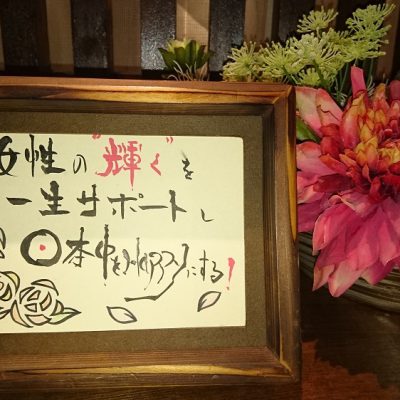 女性の"輝く"を
一生サポートし
日本中を
にする!